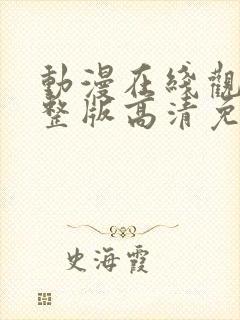 動漫在綫觀
整版高清免
史海霞